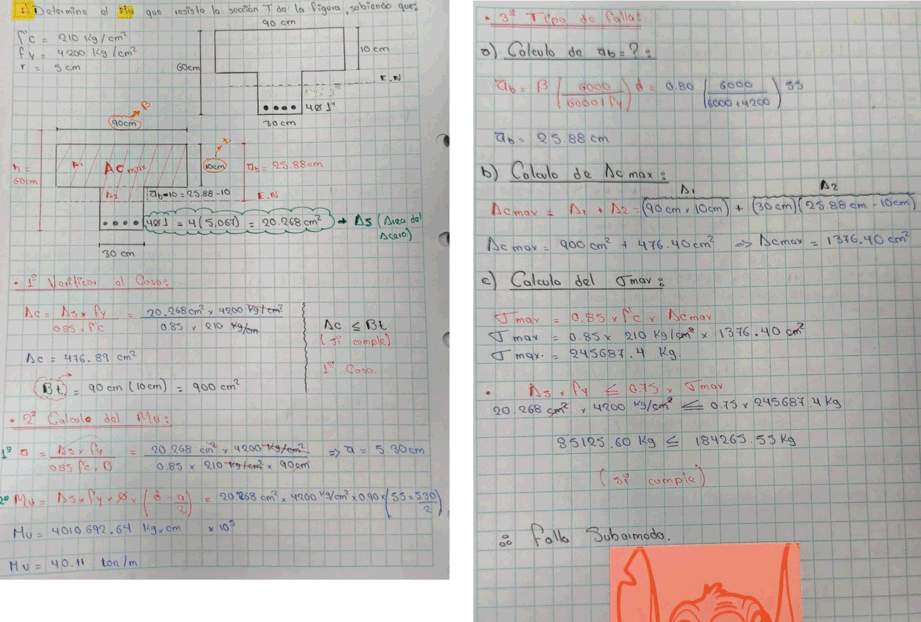 1) Determine el Mu que resiste la sección T de la figura, sabiendo que:
f'c = 210 Kg/cm²
fy = 4200 Kg/cm²
r = 5cm
90 cm
10 cm
60cm
E.N
4Ø1"
30 cm
90cm
B
h = 60cm
A1
Ac max
10cm
ab = 25.88cm
A2
ab-10 = 25.88-10
E.N
4Ø1 = 4(5,067) = 20.268 cm² → As (Area del Acero)
30 cm
• 1º Verificar el Caso:
Ac = As x fy / 0.85 f'c = 20.268cm² x 4200 Kg/cm² / 0.85 x 210 Kg/cm
Ac ≤ Bt
(si cumple)
1er Caso
Ac = 476.89 cm²
Bt = 90cm (10cm) = 900 cm²
• 2º Calculo del Mu:
1º a = As x fy / 0.85 f'c . B = 20.268 cm² x 4200 Kg/cm² / 0.85 x 210 Kg/cm x 90cm ⇒ a = 5.30cm
2º Mu = As x fy x Ø x (d - a/2) = 20.268 cm² x 4200 Kg/cm² x 0.90 x (55 x 5.30/2)
Mu = 4010692.64 Kg x cm x 10⁵
Mu = 40.11 ton/m
• 3º Tipo de falla:
a) Calculo de ab = ? :
ab = β (6000 / 6000 + fy) d = 0.80 (6000 / 6000 + 4200) 55
ab = 25.88 cm
b) Calculo de Ac max:
A1 A2
Ac max = A1 + A2 = (90 cm x 10cm) + (30 cm)(25.88 cm - 10cm)
Ac max = 900 cm² + 476.40 cm² ⇒ Ac max = 1376.40 cm²
c) Calculo del Tmax:
Tmax = 0.85 x f'c x Ac max
Tmax = 0.85 x 210 Kg/cm² x 1376.40 cm²
Tmax = 245687.4 Kg
• As x fy ≤ 0.75 x Tmax
20.268 cm² x 4200 Kg/cm² ≤ 0.75 x 245687.4 Kg
85125.60 Kg ≤ 184265.55 Kg
(si cumple)
∴ Falla Subarmada.